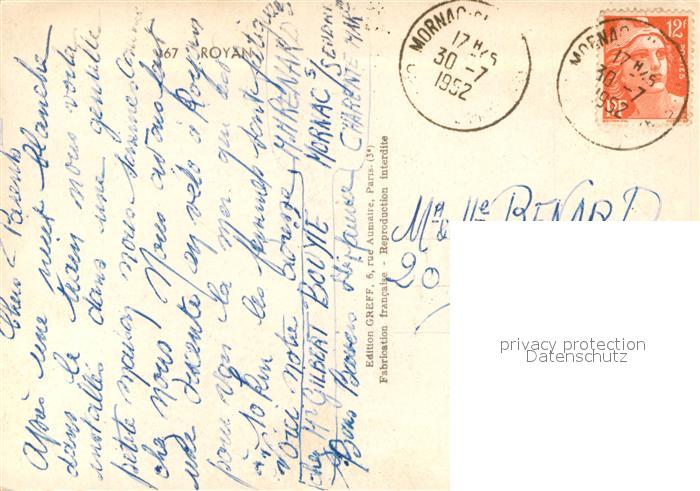 367 ROYAN
Chers Parents
Après une nuit blanche
dans le train nous voila
installés dans une gentille
petite maison nous sommes comme
chez nous Nous avons fait
une descente en vélo à Royan
pour voir la mer qui est
à 10 km les
Voici notre adresse
chez Mr GILBERT BOUYÉ MORNAC S/ SEUDRE
CHARENTE MARE
Bons Baisers
Edition GREFF, 6, rue Aumaire, Paris-(3e)
Fabrication française - Reproduction interdite
MORNAC-S
17 H 45
30 -7
1952
MORNAC
17 H 45
30 -7
1952
12f
POSTES
RF
BENARD
20
privacy protection
Datenschutz